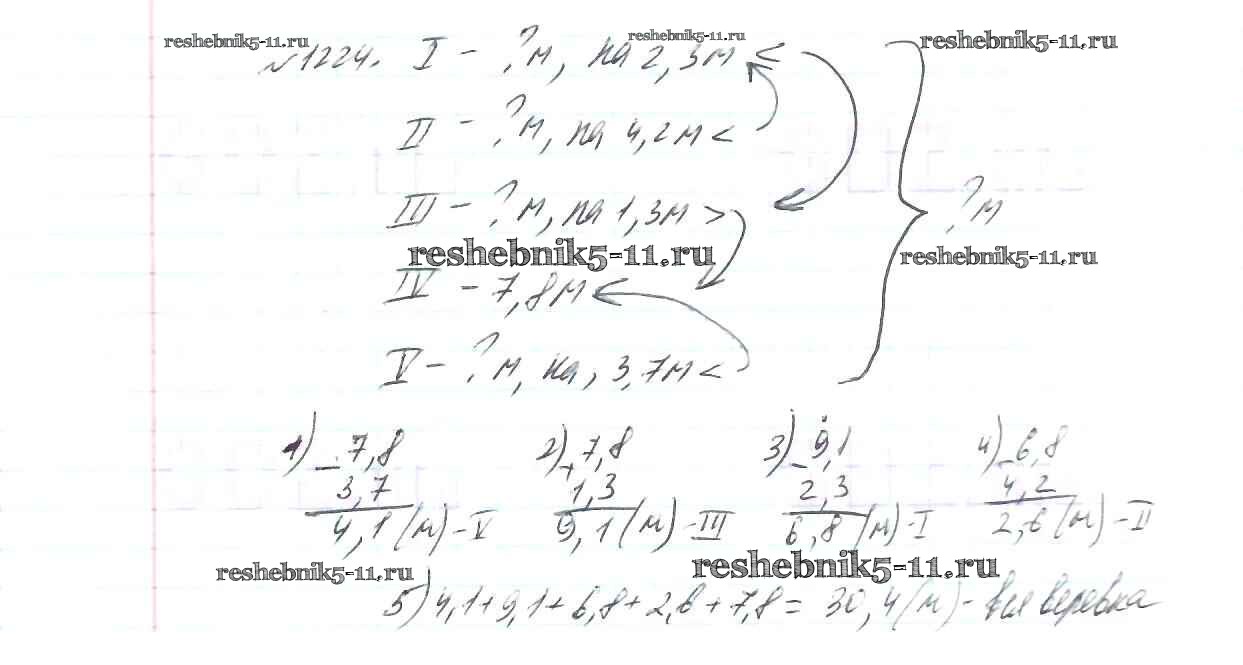 reshebnik5-11.ru reshebnik5-11.ru reshebnik5-11.ru
№1224. I - ?м, на 2,3м <
II - ?м, на 4,2м <
III - ?м, на 1,3м >
?м
reshebnik5-11.ru reshebnik5-11.ru
IV - 7,8м
V - ?м, на, 3,7м <
1) - 7,8 2) + 7,8 3) - 9,1 4) - 6,8
3,7 1,3 2,3 4,2
4,1 (м) - V 9,1 (м) - III 6,8 (м) - I 2,6 (м) - II
reshebnik5-11.ru reshebnik5-11.ru
5) 4,1+9,1+6,8+2,6+7,8 = 30,4 (м) - вся веревка